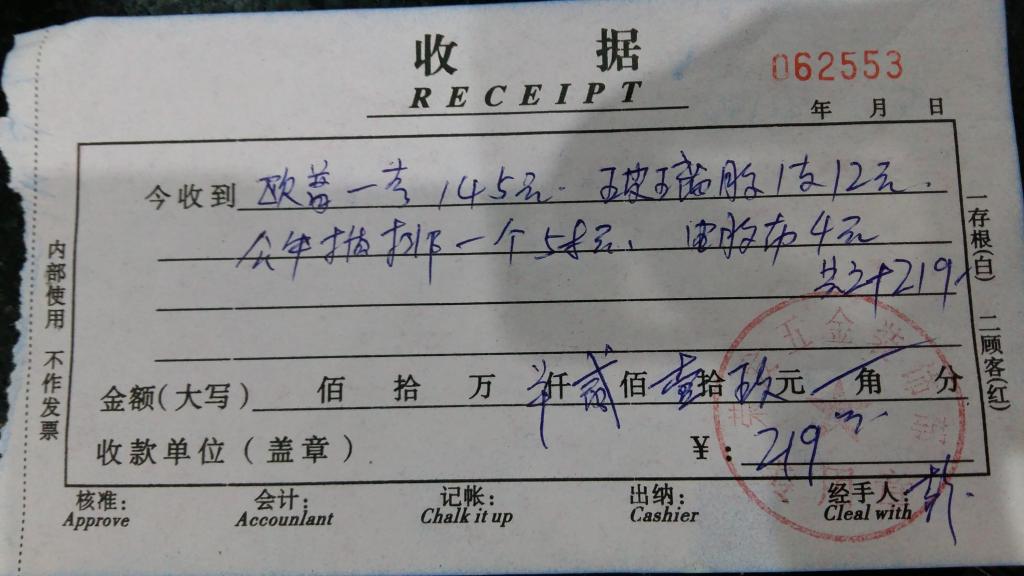 收据
RECEIPT
062553
年 月 日
今收到 欧普一套 145元. 玻璃胶1支12元.
公牛插排一个58元、 电胶布4元
共计219
金额(大写) 佰 拾 万 仟 贰 佰 壹 拾 玖 元 角 分
收款单位(盖章) ¥: 219
核准: 会计: 记帐: 出纳: 经手人:
Approve Accounlant Chalk it up Cashier Cleal with
内部使用 不作发票
一存根(白) 二顾客(红)
五金